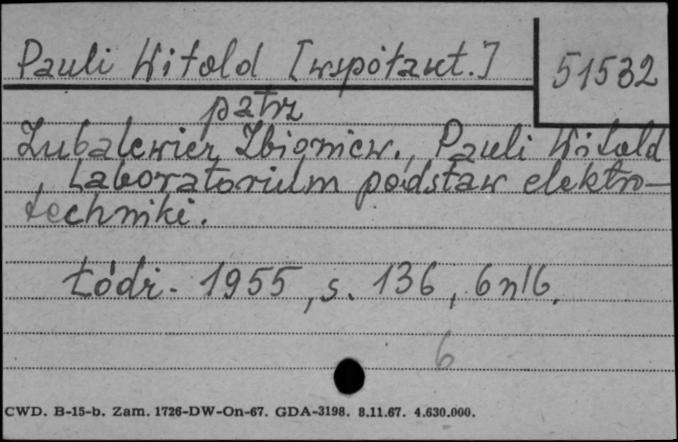 Pauli Witold [współaut.]
51532
patrz
Zubalewicz Zbigniew., Pauli Witold
, Laboratorium podstaw elektro-
techniki.
Łódź - 1955, s. 136, 6 nlb.
6
CWD. B-15-b. Zam. 1726-DW-On-67. GDA-3198. 8.11.67. 4.630.000.